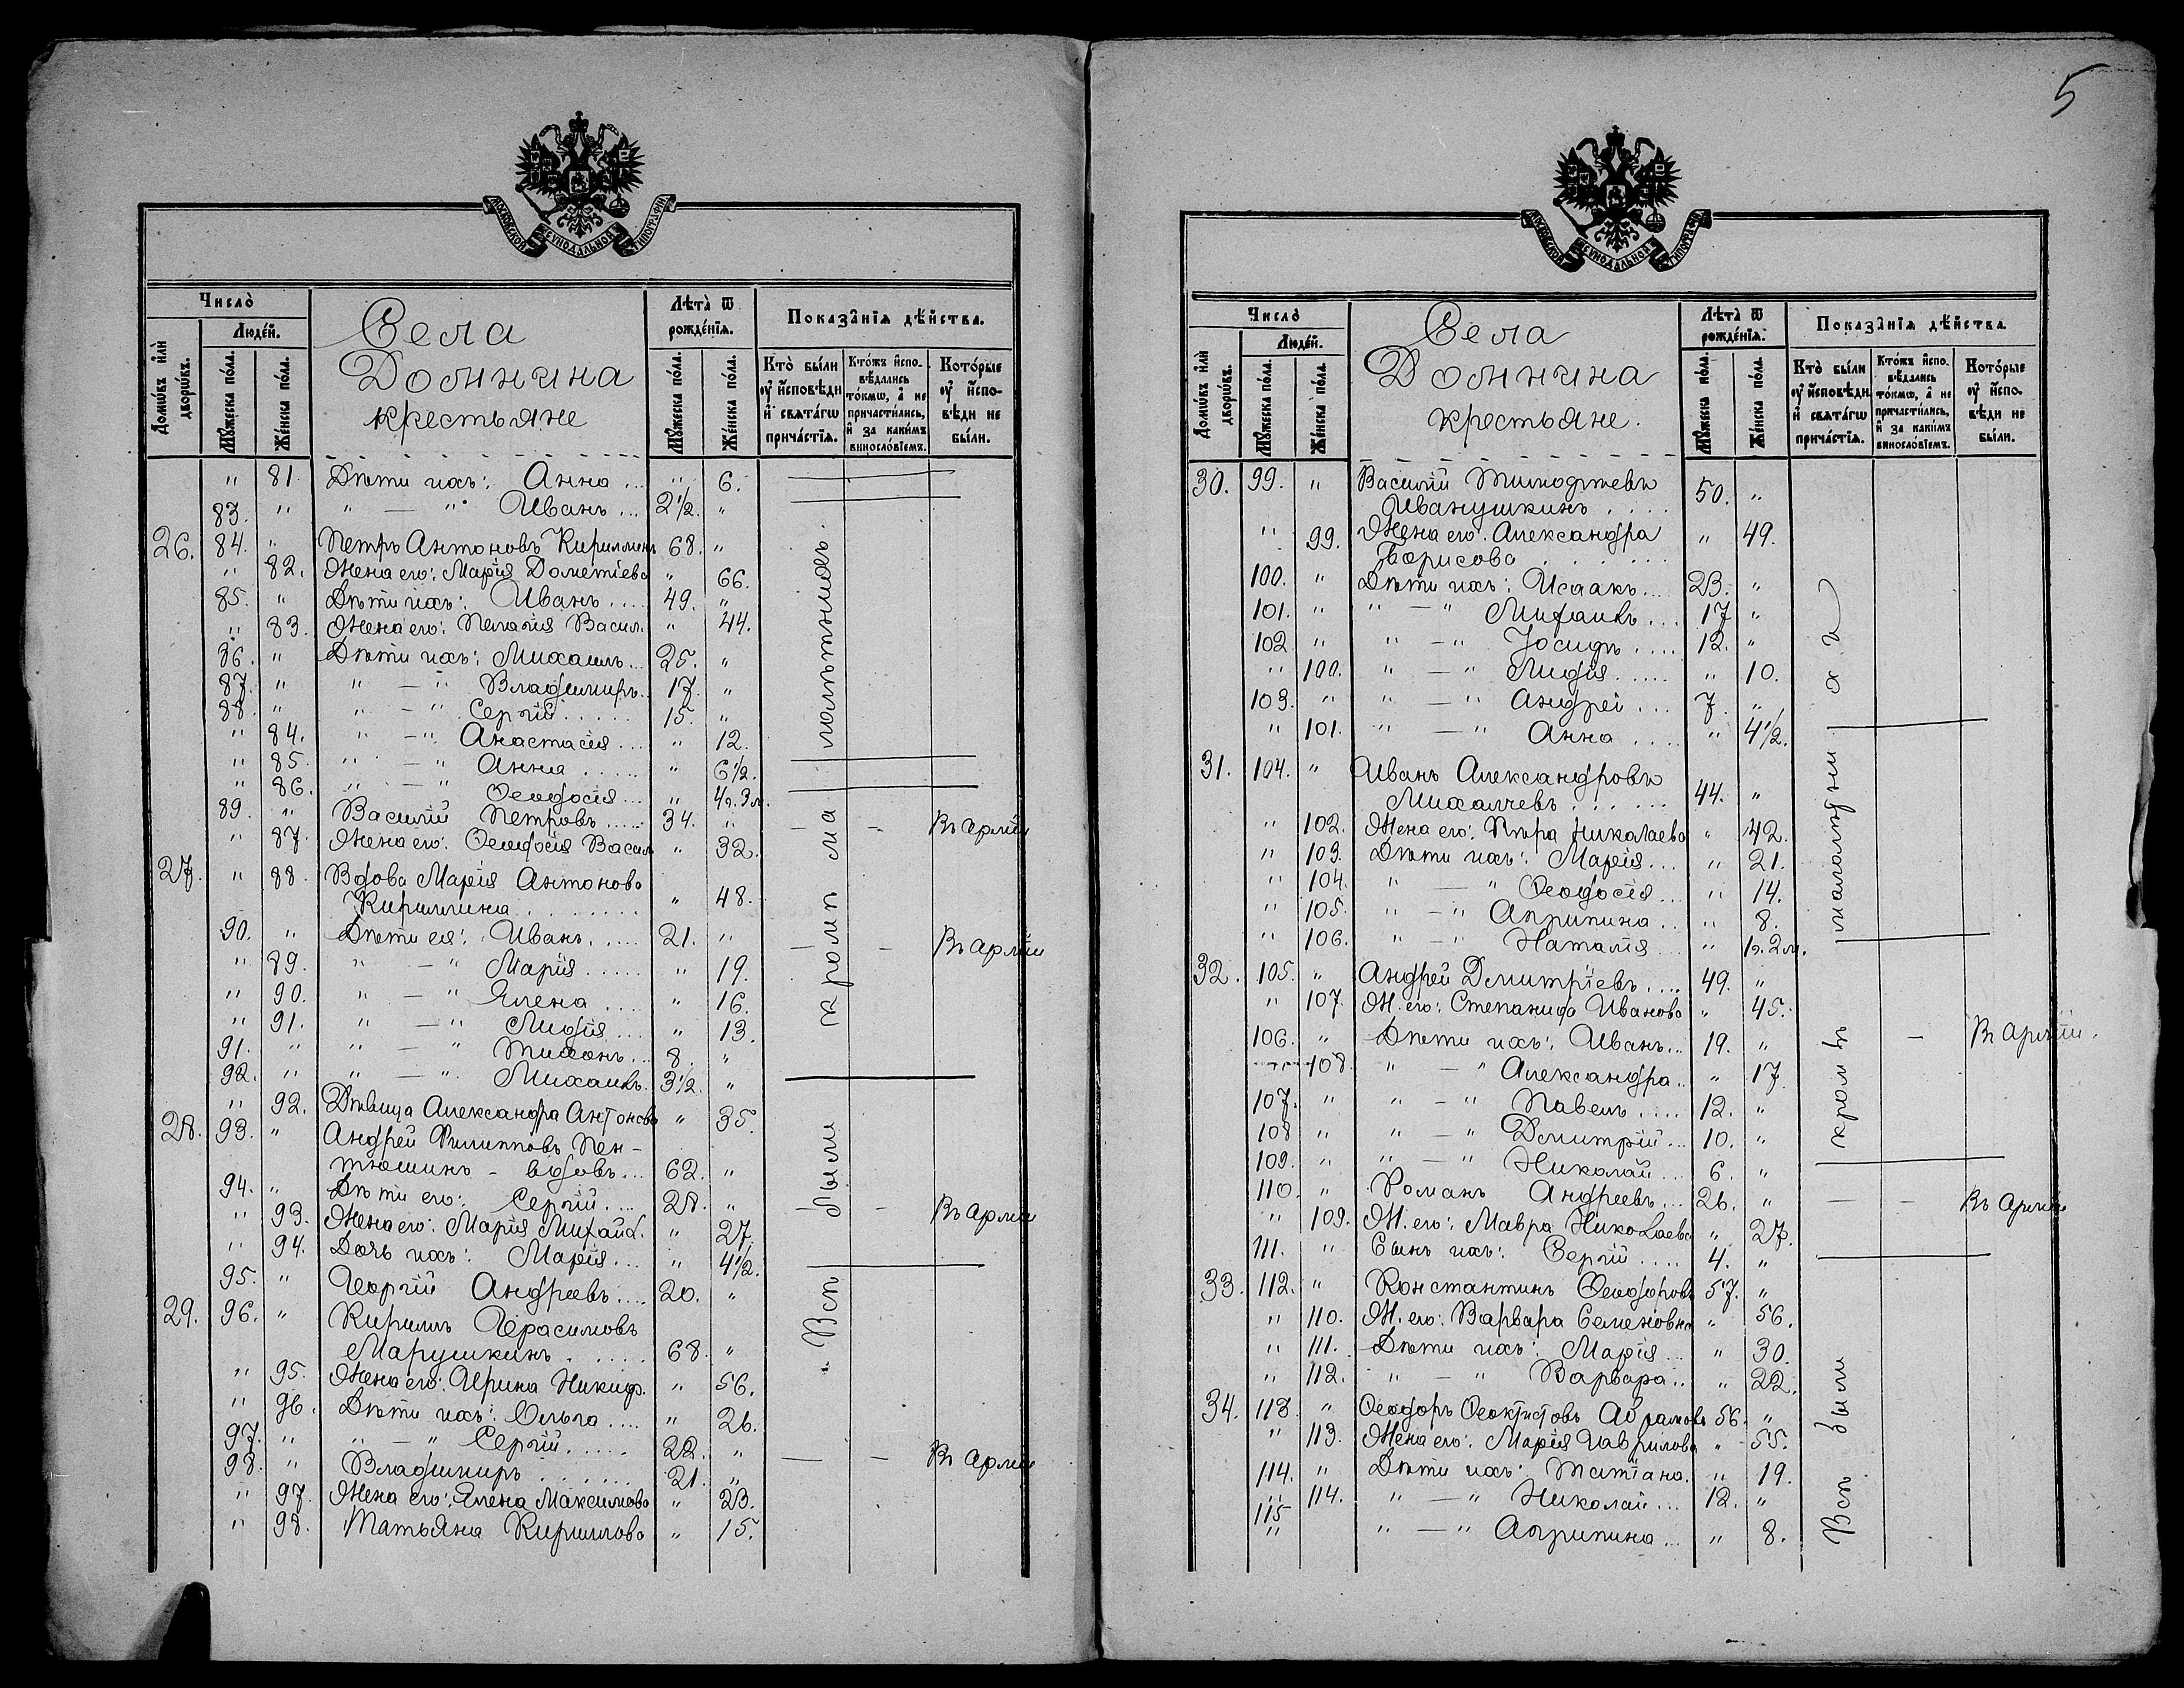 МОСКОВСКОЙ СѴНОДАЛЬНОЙ ТИПОГРАФІИ
Число̀
Домѡ́въ и҆лѝ дворѡ́въ.
Люде́й.
Мꙋ́жеска по́ла.
Же́нска по́ла.
Села
Долинина
крестьяне
Лѣта̀ ѿ рожде́нїѧ.
Мꙋ́жеска по́ла.
Же́нска по́ла.
Показа̑нїѧ дѣ́йства.
Кто̀ бы́ли оу҆ и҆сповѣ́ди и҆ свѧта́гѡ прича́стїѧ.
Кто́жъ и҆сповѣ́дались то́кмѡ, а҆ не причасти́лись, и҆ за каки́мъ винослѻ́вїемъ.
Кото́рые оу҆ и҆сповѣ́ди не бы́ли.
" 81. Дѣти ихъ: Анна ... " 6.
83. " " — " Иванъ ... 2½. "
26. 84. " Петръ Антоновъ Кириллинъ 68. "
" 82. Жена его: Марія Дометіева " 66.
85. " Дѣти ихъ: Иванъ .... 49. "
" 83. Жена его: Пелагія Васил. " 44.
86. " Дѣти ихъ: Михаилъ ... 25. "
87. " " — " Владимиръ .. 17. "
88. " " — " Сергій ..... 15. "
" 84. " — " Анастасія ... " 12.
" 85. " — " Анна ...... " 6½.
" 86. " — " Ѳеодосія ... " 4г. 3м.
89. " Василій Петровъ ..... 34. " — – Въ арміи
" 87. Жена его: Ѳеодосія Васил " 32.
27. " 88. Вдова Марія Антонова
Кириллина ........ " 48.
90. " Дѣти ея: Иванъ ..... 21. " — – Въ арміи
" 89. " — " Марія ..... " 19.
" 90. " — " Елена .... " 16.
" 91. " — " Лидія .... " 13.
91. " " — " Тихонъ ... 8. "
92. " " — " Михаилъ. 3½. "
" 92. Дѣвица Александра Антонова " 35.
28. 93. " Андрей Филипповъ Пен-
тюшинъ – вдовъ ... 62. "
94. " Дѣти его: Сергій .... 28. " – Въ арміи
" 93. Жена его: Марія Михайл. " 27.
" 94. Дочь ихъ: Марія ... " 4½.
95. " Георгій Андреевъ .... 20. "
29. 96. " Кириллъ Герасимовъ
Марушкинъ ...... 68. "
" 95. Жена его: Ирина Никиф. " 56.
" 96. Дѣти ихъ: Ольга .... " 26.
97. " " — " Сергій ..... 22. "
98. " Владимиръ ...... 21. " — – Въ арміи
" 97. Жена его: Елена Максимова " 23.
" 98. Татьяна Кириллова " 15.
Всѣ были кромѣ малолѣтнихъ.
5
МОСКОВСКОЙ СѴНОДАЛЬНОЙ ТИПОГРАФІИ
Число̀
Домѡ́въ и҆лѝ дворѡ́въ.
Люде́й.
Мꙋ́жеска по́ла.
Же́нска по́ла.
Села
Долинина
крестьяне.
Лѣта̀ ѿ рожде́нїѧ.
Мꙋ́жеска по́ла.
Же́нска по́ла.
Показа̑нїѧ дѣ́йства.
Кто̀ бы́ли оу҆ и҆сповѣ́ди и҆ свѧта́гѡ прича́стїѧ.
Кто́жъ и҆сповѣ́дались то́кмѡ, а҆ не причасти́лись, и҆ за каки́мъ винослѻ́вїемъ.
Кото́рые оу҆ и҆сповѣ́ди не бы́ли.
30. 99. " Василій Тимофеевъ
Иванушкинъ .... 50. "
" 99. Жена его: Александра " 49.
Борисова .......
100. " Дѣти ихъ: Исаакъ ... 23. "
101. " " — " Михаилъ ... 17 "
102. " " — " Іосифъ .... 12. "
" 100. " — " Лидія ..... " 10.
103. " " — " Андрей ... 7. "
" 101. " — " Анна .... " 4½.
31. 104. " Иванъ Александровъ
Михалчевъ ...... 44. "
" 102. Жена его: Вѣра Николаева " 42.
" 103. Дѣти ихъ: Марія ... " 21.
" 104. " — " Ѳеодосія ... " 14.
" 105. " — " Агрипина .. " 8.
" 106. " — " Наталія " 1г. 2м.
32. 105. " Андрей Димитріевъ .... 49. "
" 107. Ж. его: Степанида Иванова " 45.
106. " Дѣти ихъ: Иванъ ... 19. " – Въ арміи.
" 108 " — " Александра .. " 17.
107. " " — " Павелъ .... 12. "
108 " " — " Димитрій ... 10. "
109. " " — " Николай ... 6. "
110. " Романъ Андреевъ ... 26. " — – Въ арміи
" 109. Ж. его: Мавра Николаева " 27.
111. " Сынъ ихъ: Сергій .... 4. "
33. 112. " Константинъ Ѳеодоровъ 57. "
" 110. Ж. его: Варвара Семеновна " 56.
" 111. Дѣти ихъ: Марія ... " 30.
" 112. " — " Варвара .. " 22.
34. 113. " Ѳеодоръ Ѳеоктистовъ Абрамовъ 56. "
" 113. Жена его: Марія Гаврилова " 55.
114. " Дѣти ихъ: Татіана. " 19.
" 114. " — " Николай ... 12. "
115 " " — " Агрипина ... " 8.
Всѣ были кромѣ малолѣтнихъ